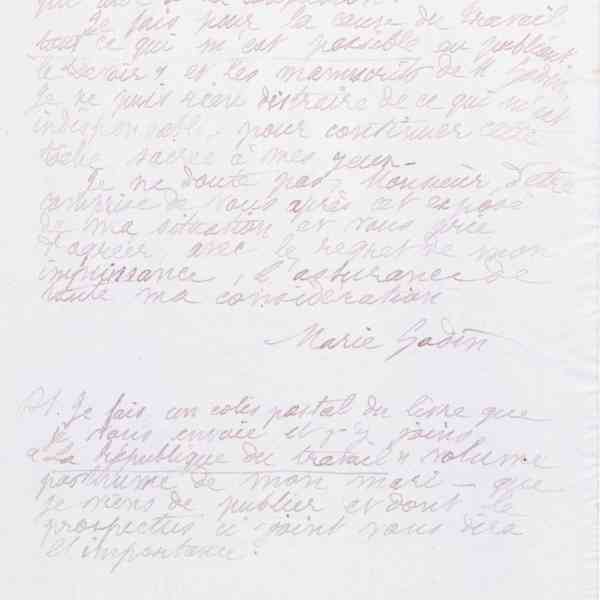 Je fais pour la cause du travail
tout ce qui m'est possible en publiant
le Devoir » et les manuscrits de M. Godin
Je ne puis rien distraire de ce qui m'est
indispensable pour continuer cette
tâche sacrée à mes yeux.
Je ne doute pas, Monsieur, d'être
comprise de vous après cet exposé
de ma situation et vous prie
d'agréer, avec le regret de mon
impuissance, l'assurance de
toute ma considération
Marie Godin
PS. Je fais un colis postal du livre que
je vous envoie et j'y joins
« La république du travail » volume
posthume de mon mari — que
je viens de publier et dont le
prospectus ci joint vous dira
l'importance.